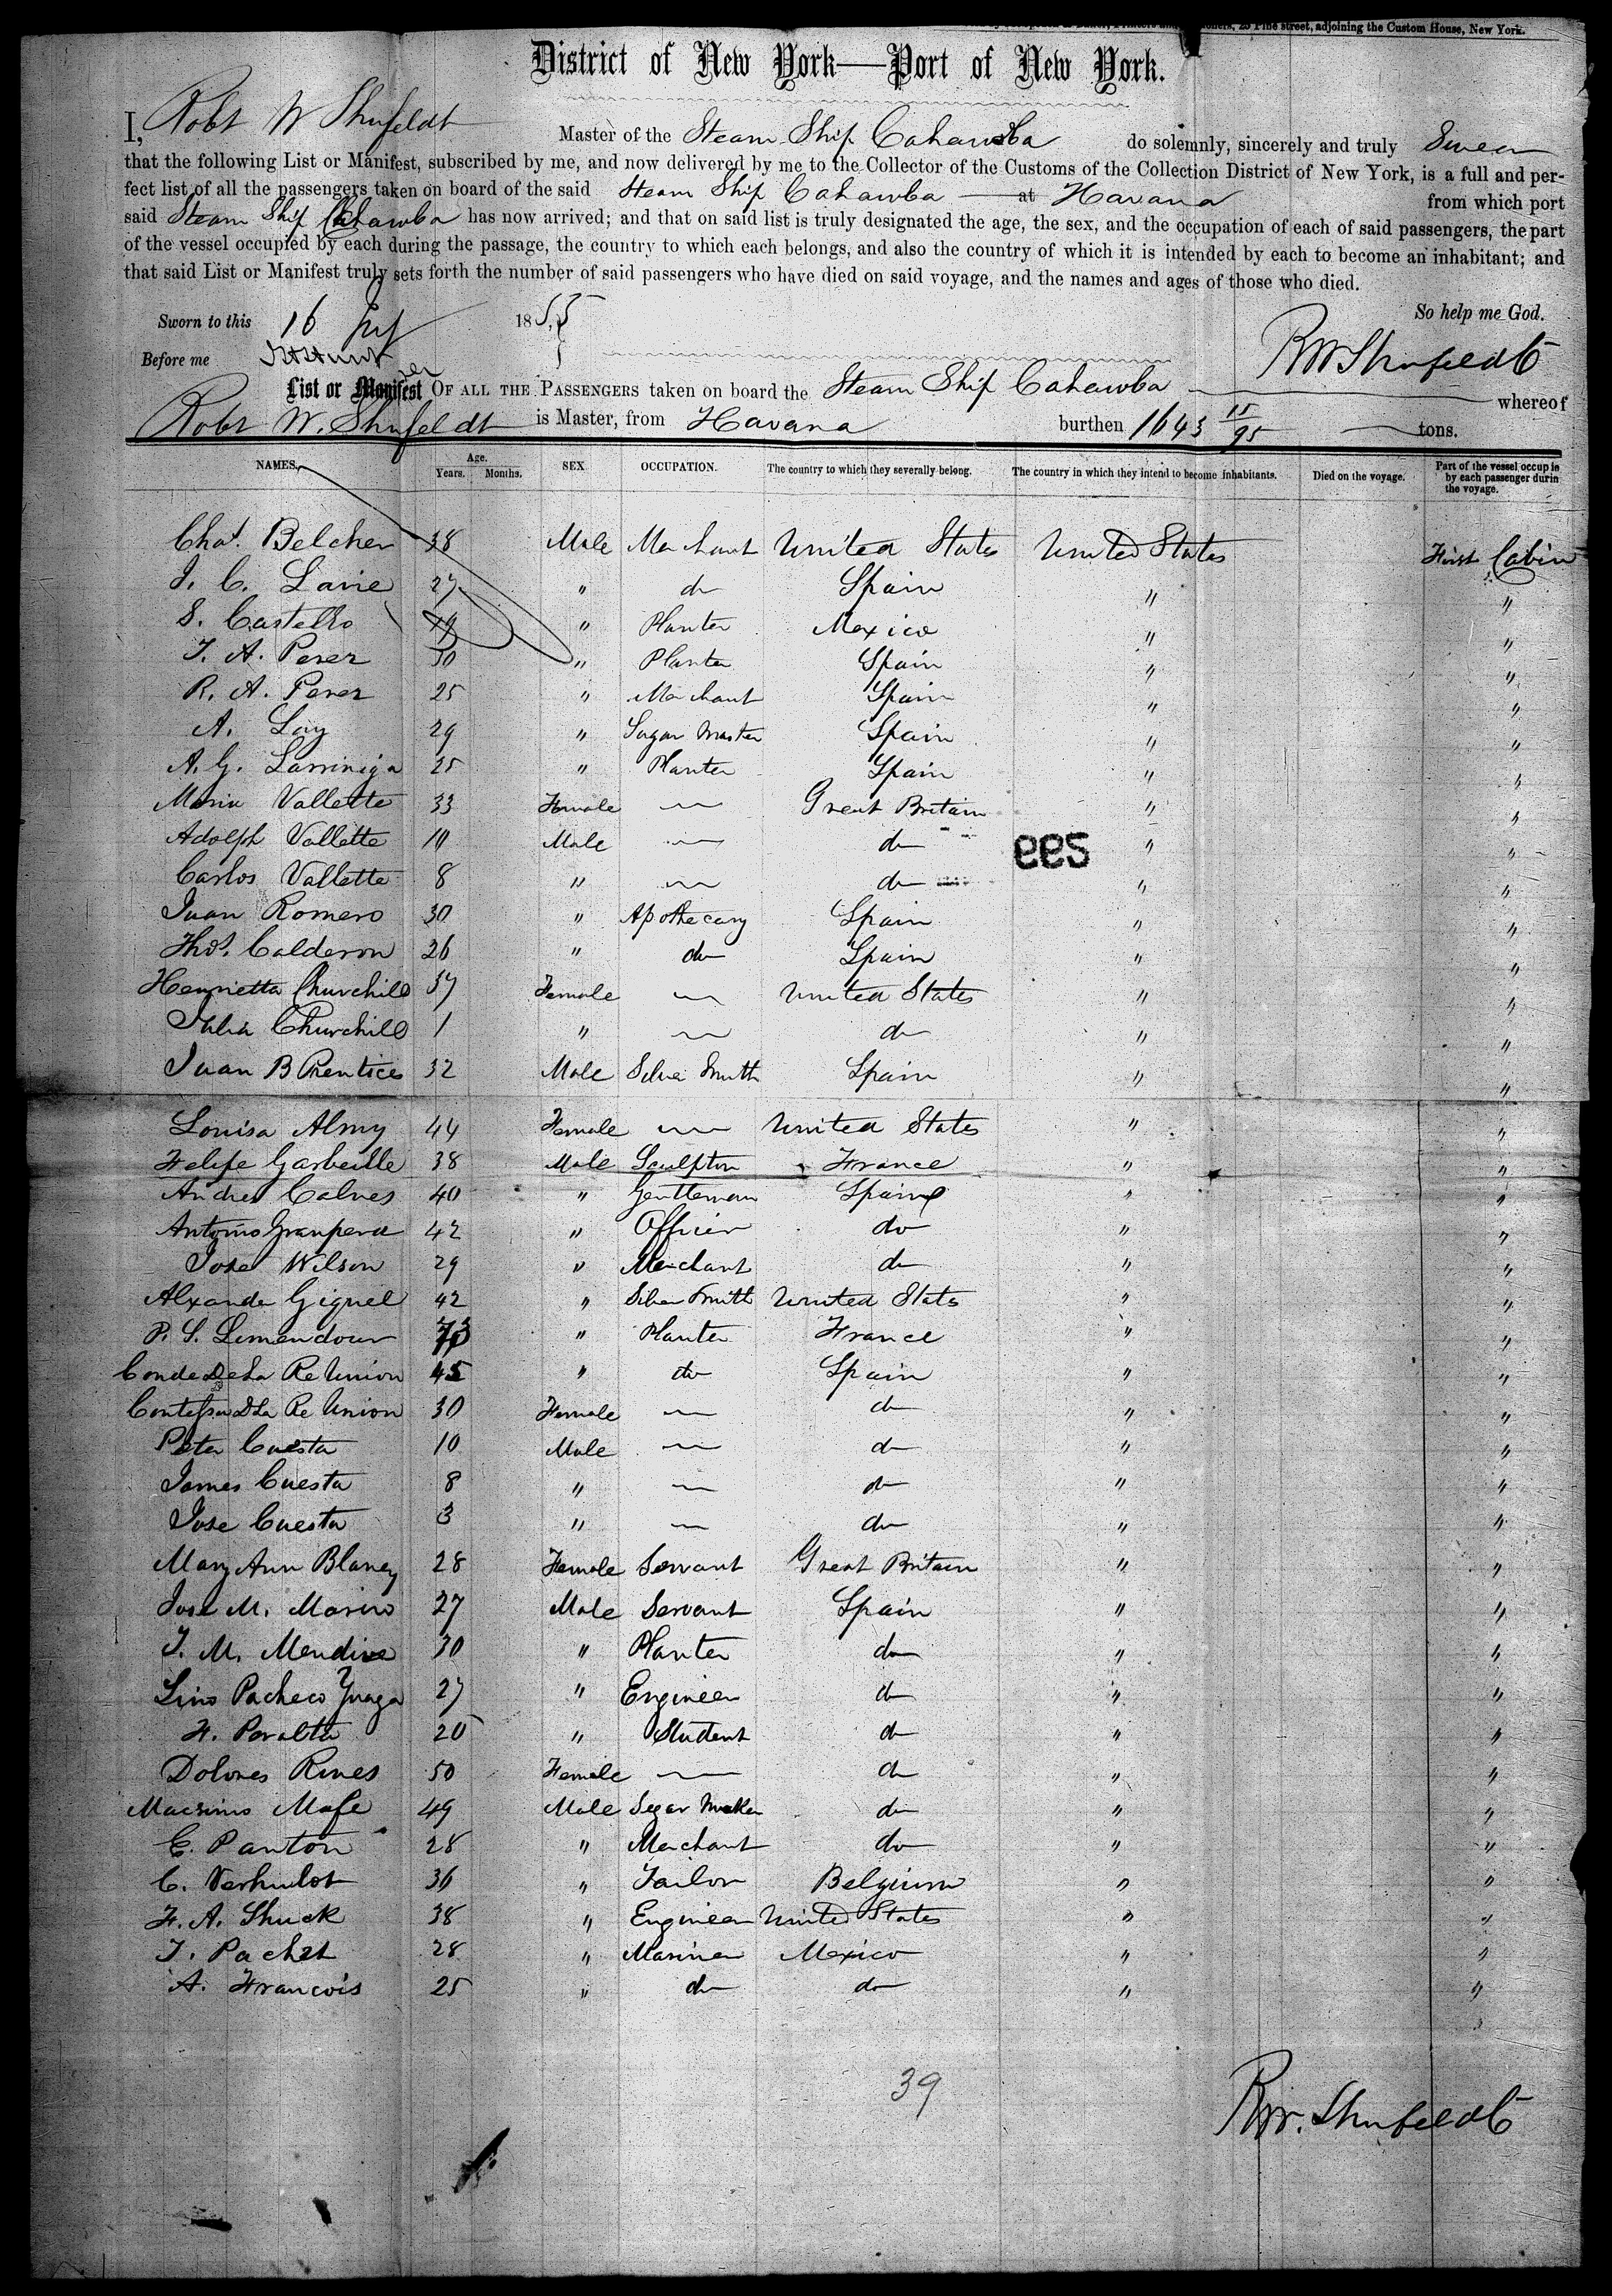 25 Pine street, adjoining the Custom House, New York.
District of New York—Port of New York.
I, Robt W Shufeldt Master of the Steam Ship Cahawba do solemnly, sincerely and truly Swear
that the following List or Manifest, subscribed by me, and now delivered by me to the Collector of the Customs of the Collection District of New York, is a full and per-
fect list of all the passengers taken on board of the said Steam Ship Cahawba at Havana from which port
said Steam Ship Cahawba has now arrived; and that on said list is truly designated the age, the sex, and the occupation of each of said passengers, the part
of the vessel occupied by each during the passage, the country to which each belongs, and also the country of which it is intended by each to become an inhabitant; and
that said List or Manifest truly sets forth the number of said passengers who have died on said voyage, and the names and ages of those who died.
Sworn to this 16 1855 So help me God.
Before me RW Shufeldt
List or Manifest OF ALL THE PASSENGERS taken on board the Steam Ship Cahawba whereof
Robt W. Shufeldt is Master, from Havana burthen 1643 15/95 tons.
NAMES. Age. Years. Months. SEX. OCCUPATION. The country to which they severally belong. The country in which they intend to become inhabitants. Died on the voyage. Part of the vessel occup ie by each passenger durin the voyage.
Chas. Belcher 38 Male Merchant United States United States First Cabin
J. C. Lavie 27 " do Spain " "
S. Castello " Planter Mexico " "
T. A. Perez 30 " Planter Spain " "
R. A. Perez 25 " Merchant Spain " "
A. Loy 29 " Sugar Master Spain " "
A. G. Larriniga 25 " Planter Spain " "
Maria Vallette 33 Female — Great Britain " "
Adolph Vallette 10 Male — do " "
559
Carlos Vallette 8 " — do " "
Juan Romero 30 " Apothecary Spain " "
Thos. Calderon 26 " do Spain " "
Henrietta Churchill 37 Female — United States " "
Julia Churchill 1 " — do " "
Juan B Prentices 32 Male Silver Smith Spain " "
Louisa Almy 44 Female — United States " "
Felipe Garbeille 38 Male Sculptor France " "
Andres Calves 40 " Gentleman Spain " "
Antonio Granpera 42 " Officer do " "
Jose Wilson 29 " Merchant do " "
Alxander Giquel 42 " Silver Smith United Stats " "
P. S. Limendour " Planter France " "
Conde De La Re Union 45 " do Spain " "
Contessa D La Re Union 30 Female — do " "
Peter Cuesta 10 Male — do " "
James Cuesta 8 " — do " "
Jose Cuesta 3 " — do " "
Mary Ann Blaney 28 Female Servant Great Britain " "
Jose M. Marino 27 Male Servant Spain " "
T. M. Mendive 30 " Planter do " "
Lino Pacheco Ynaga 27 " Engineer do " "
F. Peralta 20 " Student do " "
Dolores Rives 50 Female — do " "
Macsimo Mafe 49 Male Segar Maker do " "
E. Panton 28 " Merchant do " "
C. Verhulst 36 " Tailor Belgium " "
F. A. Shuck 38 " Engineer United States " "
T. Pachet 28 " Mariner Mexico " "
A. Francois 25 " do do " "
39
RW. Shufeldt